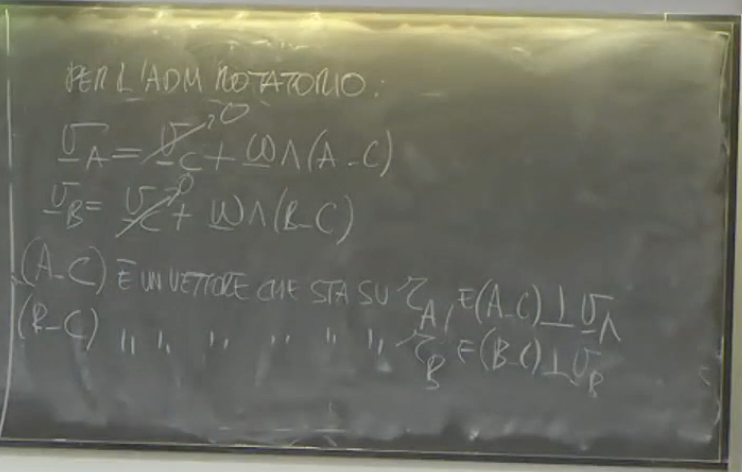 PER L'ADM ROTATORIO:
v_A = v_C→0 + ω ∧ (A-C)
v_B = v_C→0 + ω ∧ (B-C)
(A-C) È UN VETTORE CHE STA SU r_A, E (A-C) ⊥ v_A
(B-C) " " " " " " r_B E (B-C) ⊥ v_B